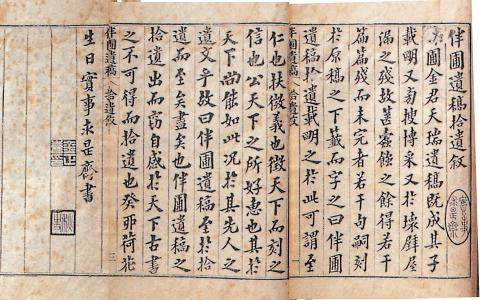 伴圃遺稿拾遺叙
伴圃金君天瑞遺稿既成其子
載明又旁搜博采又於壞壁屋
漏之殘故蠹餘之餘得若干
篇篇殘而未完者若干句嗣刻
於原稿之下籤而字之曰伴圃
遺稿拾遺載明之於此可謂至
伴圃遺稿 拾遺敘 一
仁也扶微義也徵天下而刻之
信也公天下之所好惠也其於
天下尚能如此况於其先人之
遺文乎故曰伴圃遺稿拾
遺而至矣盡也伴圃遺稿之
拾遺出而竊自感於天下古書
之不可得而拾遺也癸卯荷花
三
生日實事求是齋書